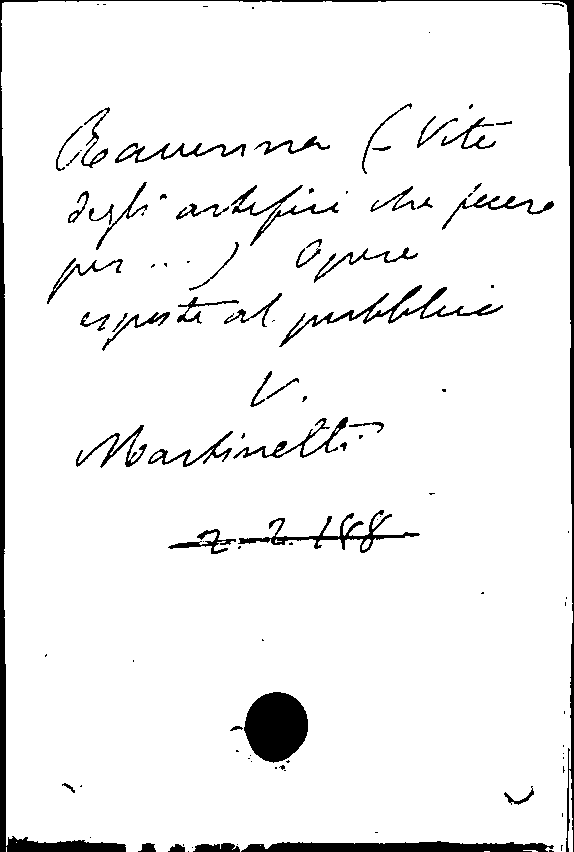 Ravenna (- Vite
degli artefici che fecero
per ...) Opere
esposte al pubblico
V.
Martinelli
2. 2. 188